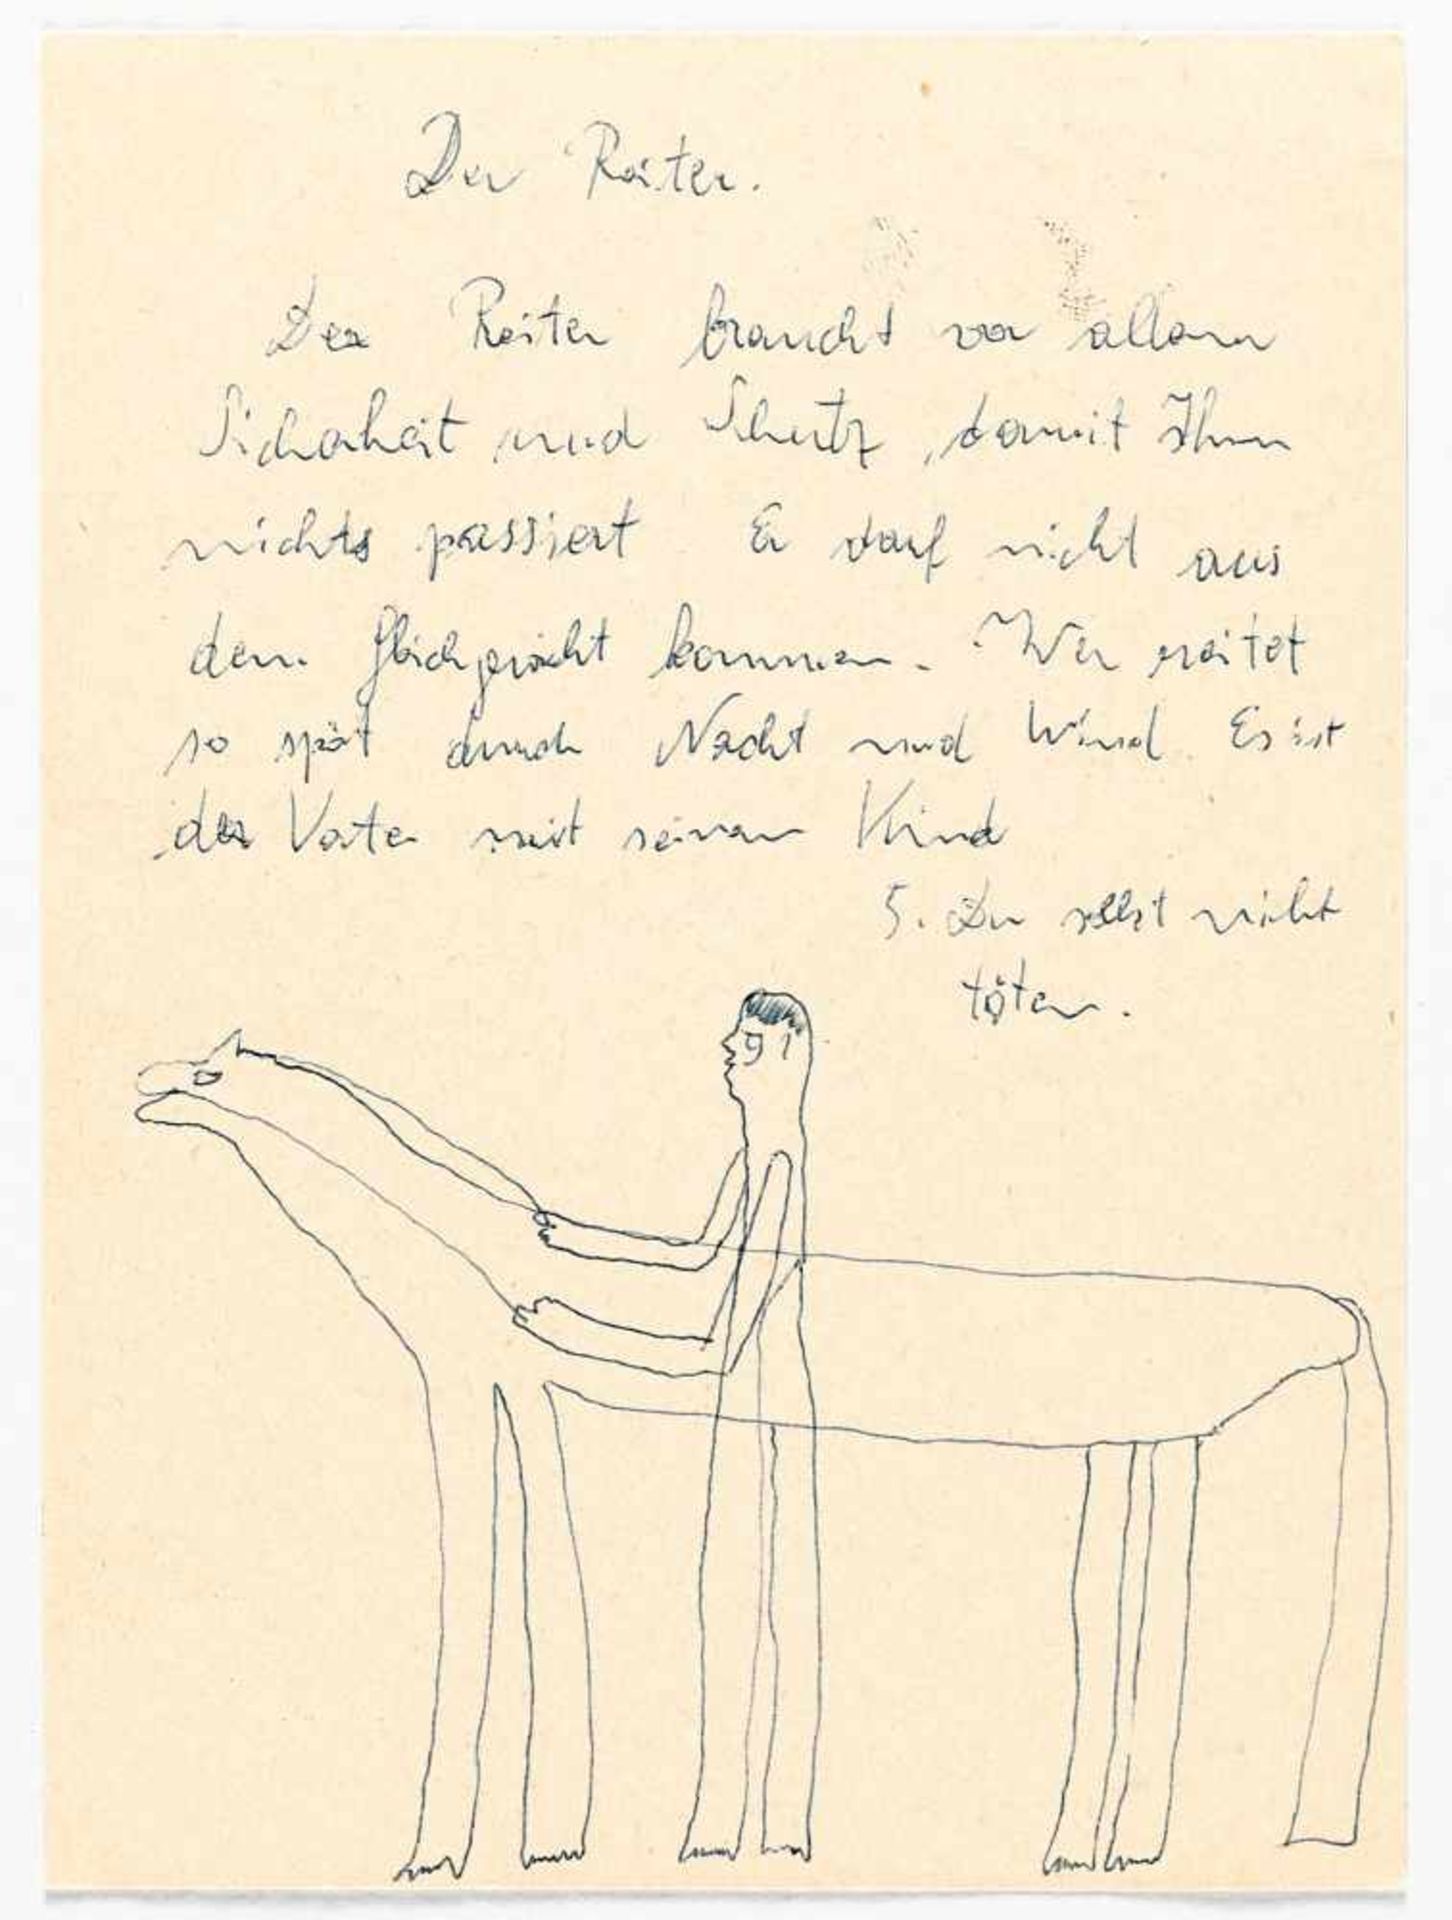 Der Reiter.
Der Reiter braucht vor allem
Sicherheit und Schutz, damit Ihm
nichts passiert Er darf nicht aus
dem Gleichgewicht kommen. Wer reitet
so spät durch Nacht und Wind. Es ist
der Vater mit seinem Kind
5. Du sollst nicht
töten.